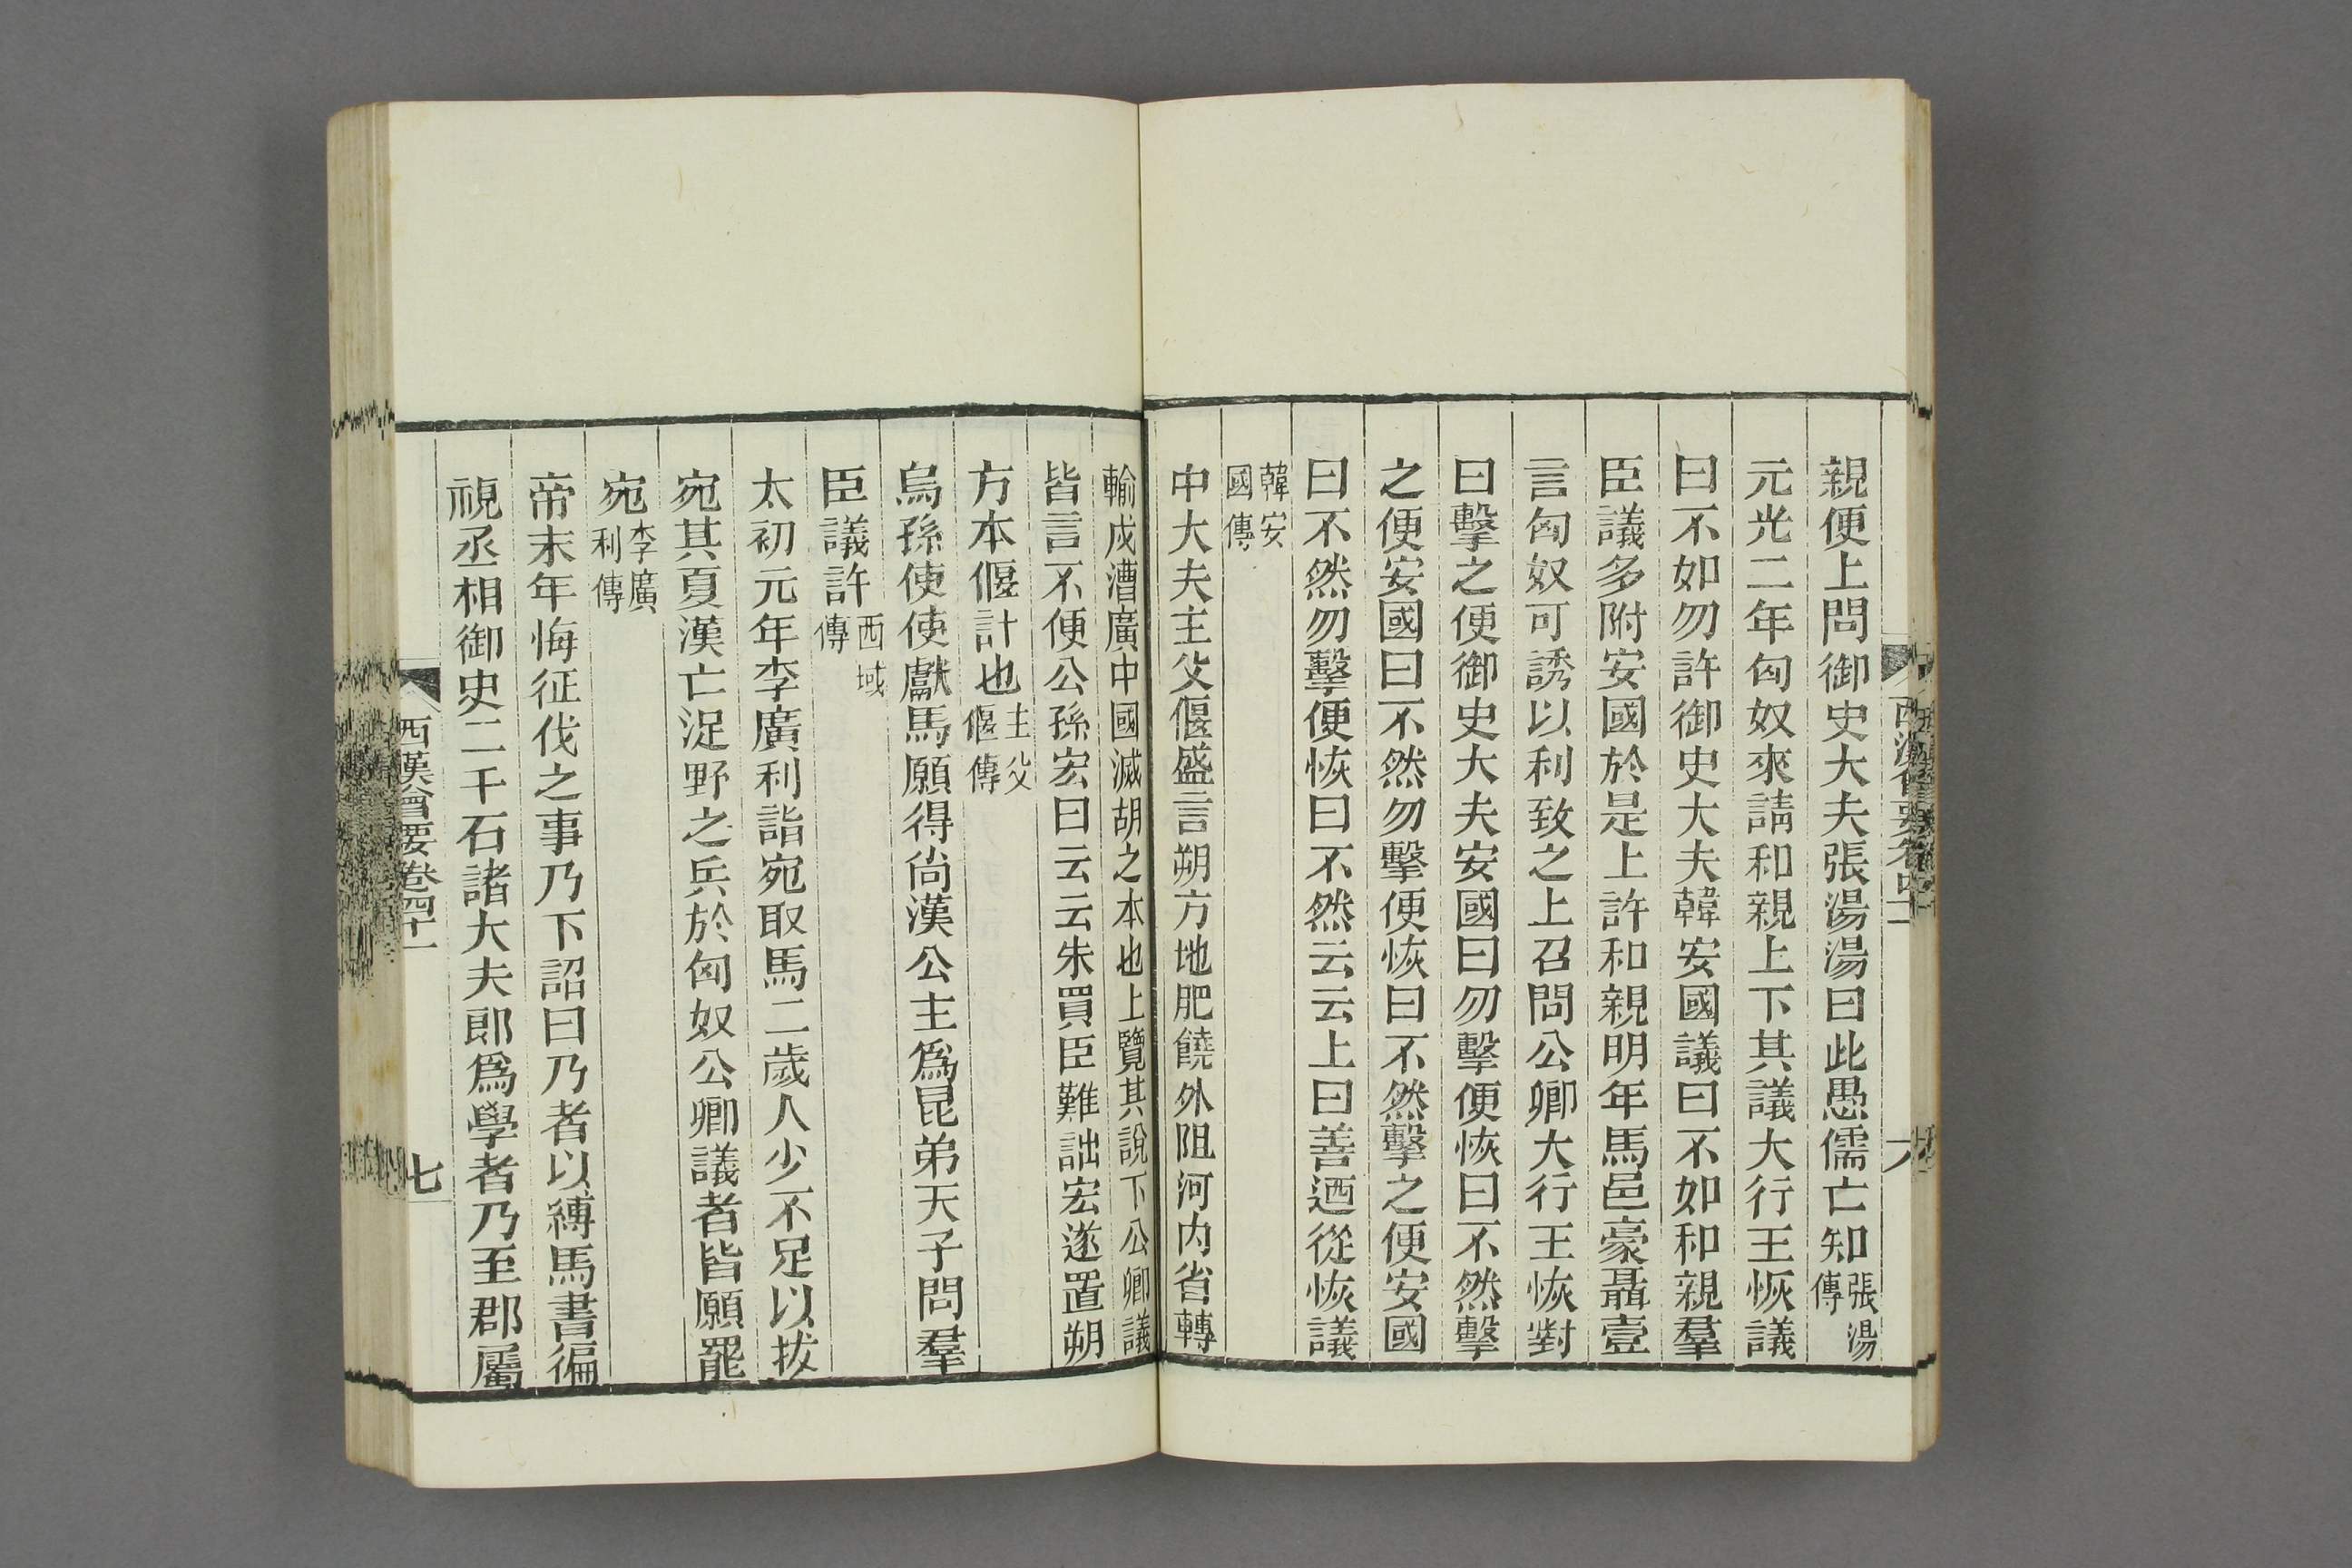 親便上問御史大夫張湯湯曰此愚儒亡知張湯傳
元光二年匈奴來請和親上下其議大行王恢議
曰不如勿許御史大夫韓安國議曰不如和親羣
臣議多附安國於是上許和親明年馬邑豪聶壹
言匈奴可誘以利致之上召問公卿大行王恢對
曰擊之便御史大夫安國曰勿擊便恢曰不然擊
之便安國曰不然勿擊便恢曰不然擊之便安國
曰不然勿擊便恢曰不然云云上曰善迺從恢議
韓安國傳
中大夫主父偃盛言朔方地肥饒外阻河內省轉
輸戍漕廣中國滅胡之本也上覽其說下公卿議
皆言不便公孫宏曰云云朱買臣難詘宏遂置朔
方本偃計也主父偃傳
烏孫使使獻馬願得尙漢公主爲昆弟天子問羣
臣議許西域傳
太初元年李廣利詣宛取馬二歲人少不足以拔
宛其夏漢亡浞野之兵於匈奴公卿議者皆願罷
宛李廣利傳
帝末年悔征伐之事乃下詔曰乃者以縛馬書徧
視丞相御史二千石諸大夫郎爲學者乃至郡屬
西漢會要卷四十一
七